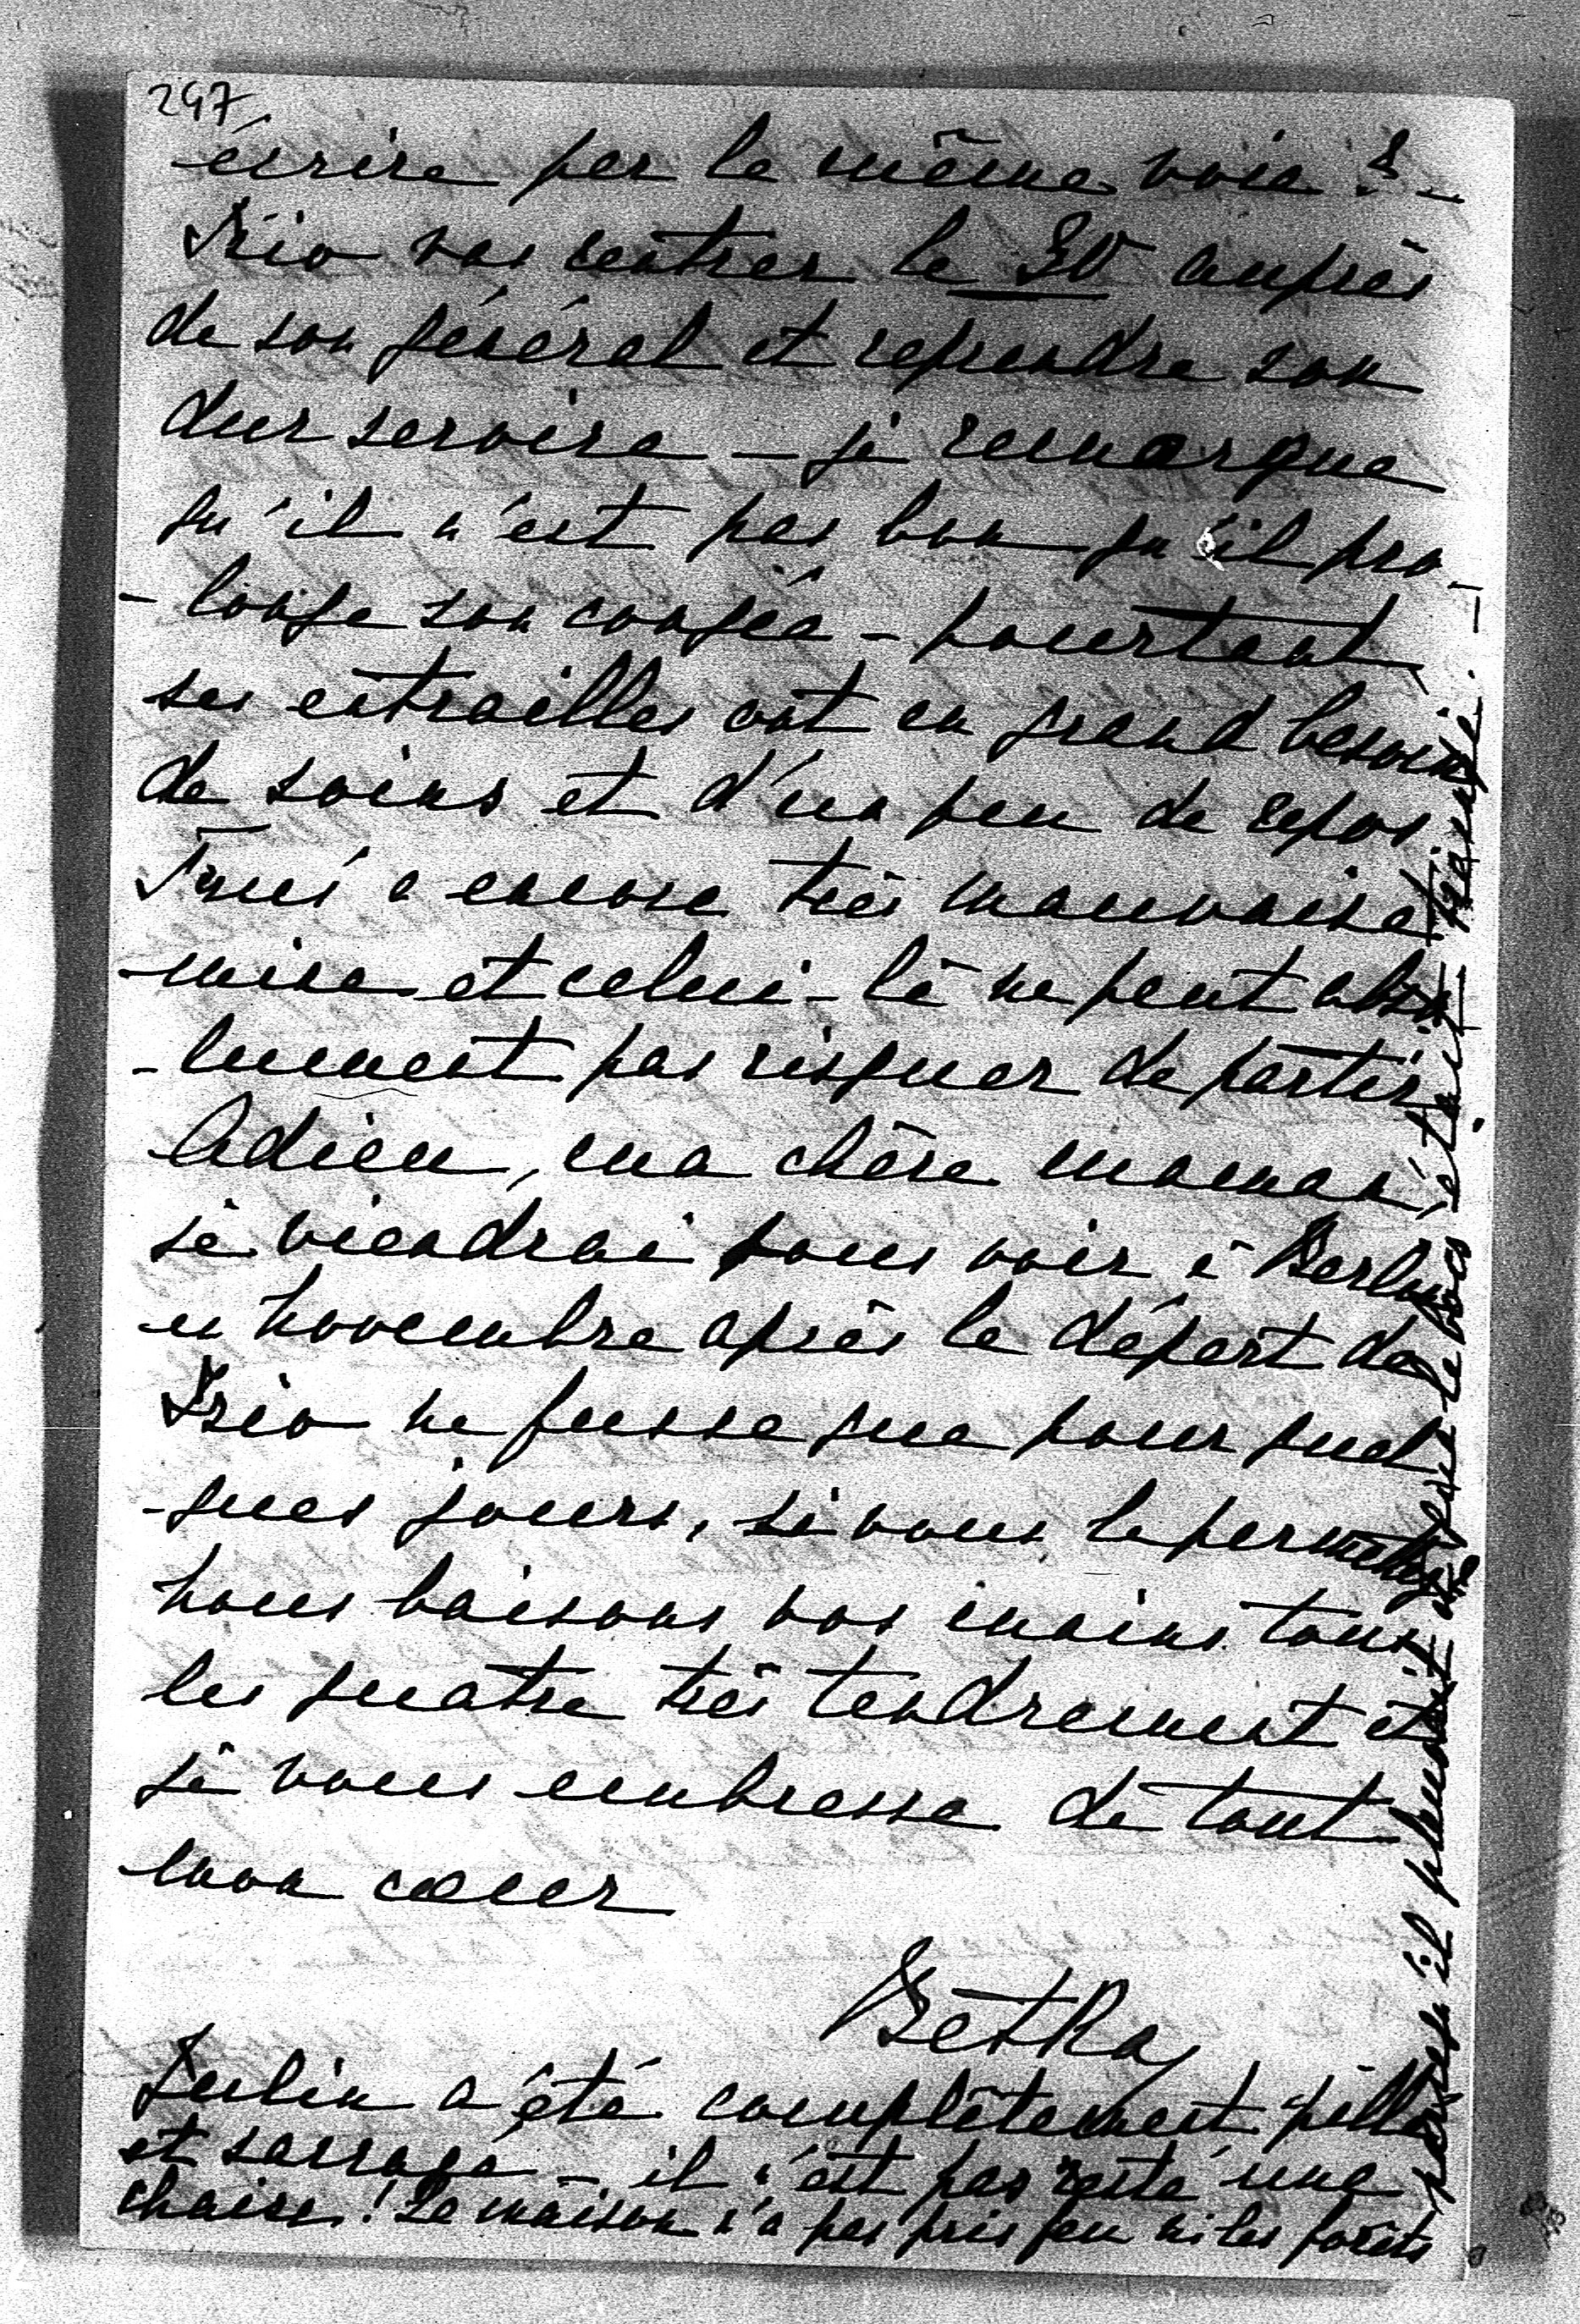 297
écrire par la même voie ? -
Frio va rentrer le 30 auprès
de son général et reprendre son
dur service - je remarque
qu'il n'est pas bon qu'il pro-
-longe son congée - pourtant
ses entrailles ont un grand besoin
de soins et d'un peu de repos.
a encore très mauvaise
mine et celui-là ne peut abso-
-lument pas risquer de partir
Adieu, ma chère maman,
je viendrai vous voir à Berlin
en novembre après le départ de
Frio ne fusse que pour quel
-ques jours, si vous le permettez
nous baisons vos mains tous
les quatre très tendrement et
je vous embrasse de tout
mon cœur
Betka
a été complètement pillé
et - il n'est pas resté une
chaise ! La maison n'a pas pris feu ni les forêts
parce qu'il pleuvait et que le bois était mouillé. -